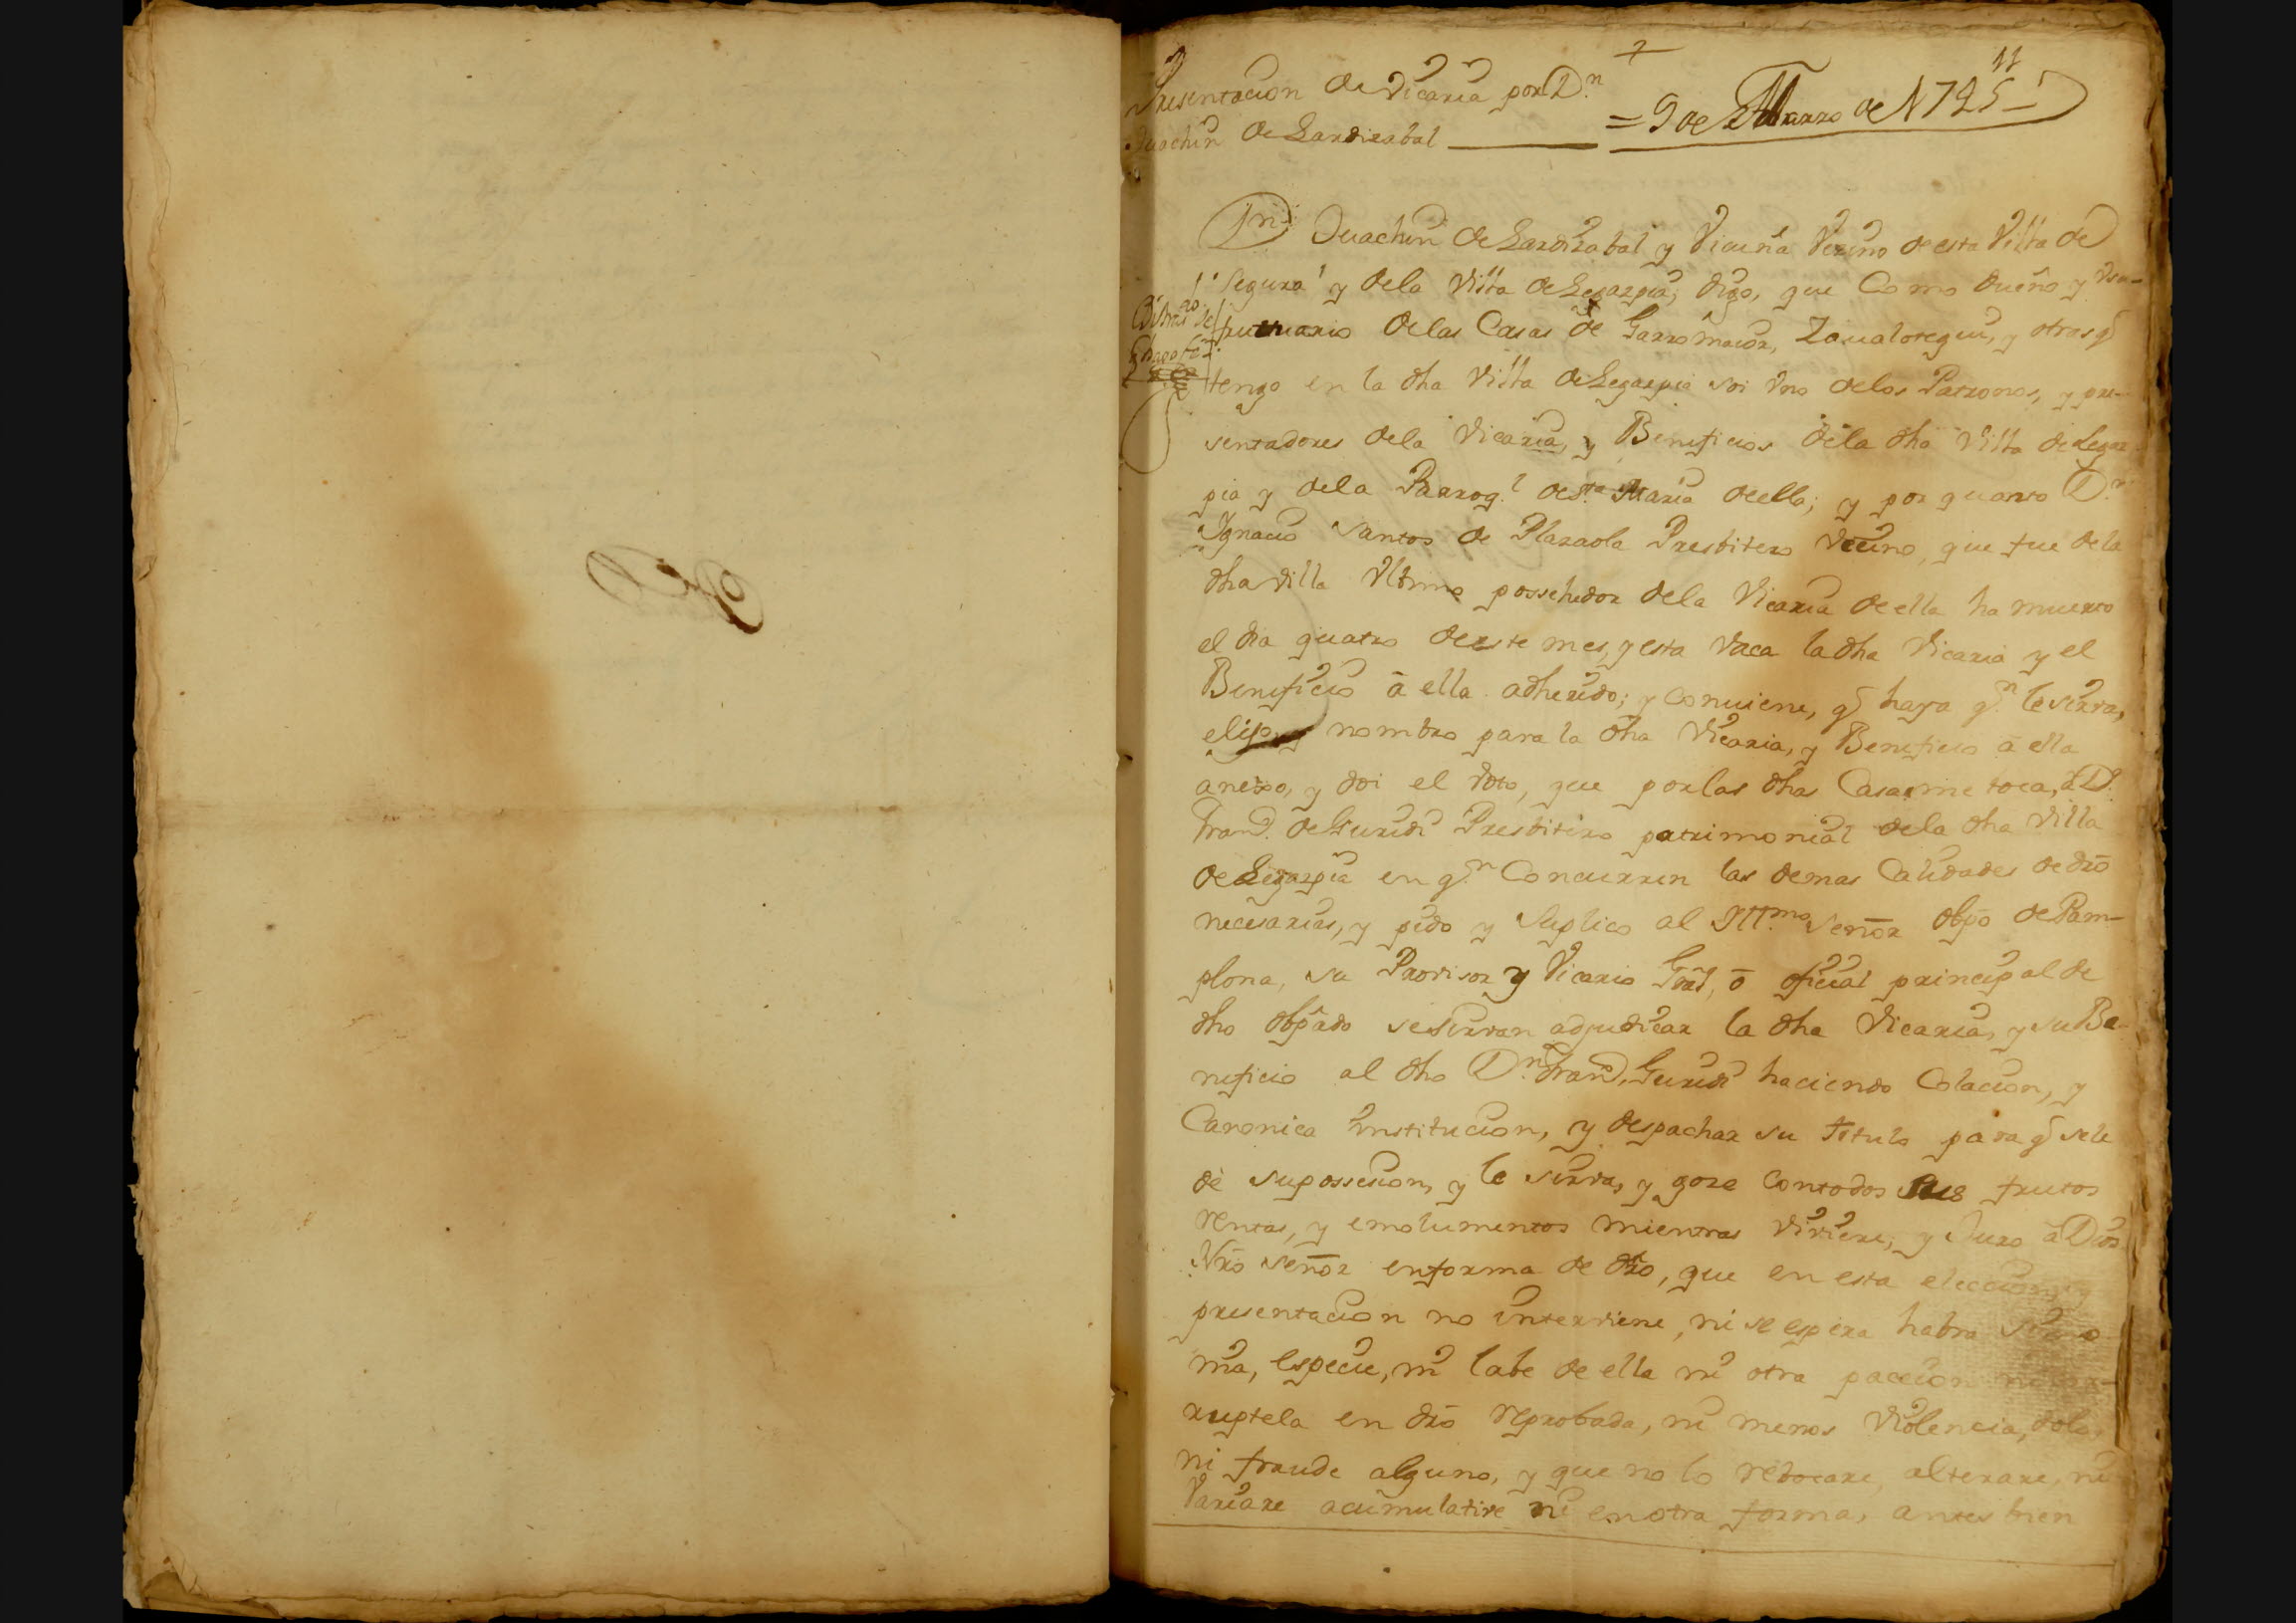 11
Presentacion de Vicaria por D.n
Juachin de Lardizabal
= 9 de Marzo de 1725
Dn Juachin de Lardizabal y Vicuña Vezino de esta Villa de
Segura y dela Villa de Legazpia, digo, que Como dueño y vsu-
fructuario delas Casas de Garro maior, Zaualotegui, y otras q̄
tengo en la dha Villa de Legazpia soi vno delos Patronos, y pre-
sentadores dela Vicaria, y Beneficios dela dha Villa de Legaz
pia y dela Parrog.l de S.ta Maria de ella; y por quanto D.n
Ignacio Santos de Plazaola Presbitero Vecino, que fue de la
dha villa Vltimo possehedor dela Vicaria de ella ha muerto
el dia quatro de este mes, y esta vaca la dha Vicaria y el
Beneficio â ella adherido; y conuiene, q̄ haya q.n le sirva,
elijo, y nombro para la dha Vicaria, y Beneficio â ella
anexo, y doi el voto, que por las dhas Casas me toca, â D.
Fran.co de Guridi Presbitero patrimonial dela dha Villa
de Legazpia en q.n Concurren las demas Calidades de dro
necesarias, y pido y suplico al Ill.mo Señor Obpo de Pam-
plona, su Provisor y Vicario Gral, ô oficial principal de
dho Obpado se sirvan adjudicar la dha Vicaria, y su Be-
neficio al dho D.n Fran.co Guridi haciendo Colacion, y
Canonica institucion, y despachar su titulo para q̄ sele
dè su possesion, y le sirva, y goze con todos sus frutos
rentas, y emolumentos mientras viviere; y Juro â Dios
Nro Señor en forma de dro, que en esta eleccion, y
presentacion no interviene, ni se espera habra simo
nia, especie, ni labe de ella ni otra paccion ni cor-
ruptela en dro reprobada, ni menos violencia, dolo,
ni fraude alguno, y que no lo rebocare, alterare, ni
Variare acumulative ni en otra forma, antes bien